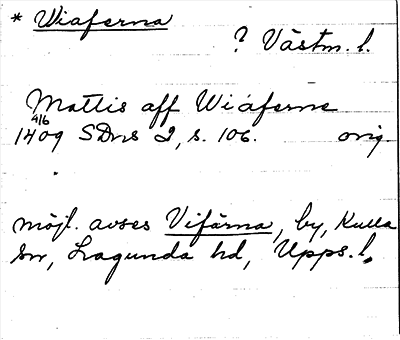 * Wiaferna
? Västm. l.
Mattis aff Wiaferne
4/6
1409 SDns 2, s. 106. orig.
möjl. avses Vifärna, by, Kulla
sn, Lagunda hd, Upps. l.